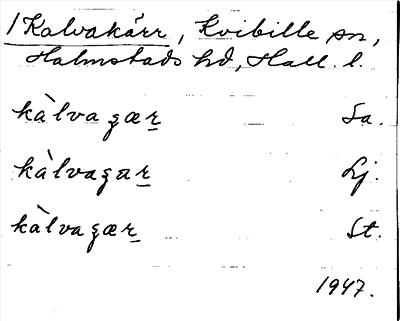 1 Kalvakärr, Kvibille sn,
Halmstads hd, Hall. l.
kàlvagær Sa.
kàlvagar Lj.
kàlvagær St.
1947.